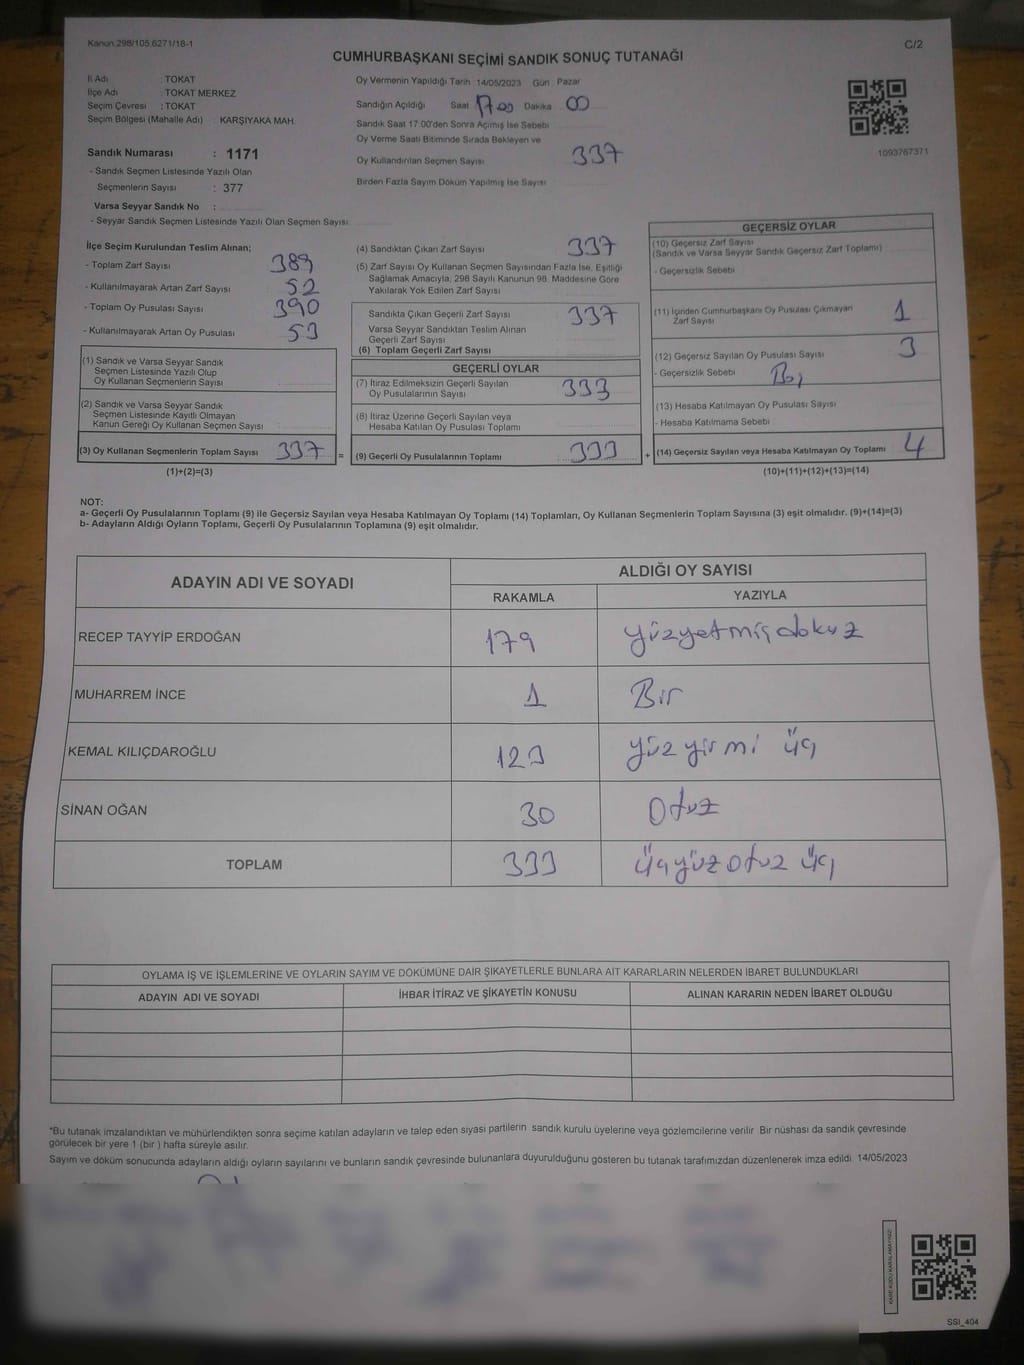 Kanun.298/105,6271/18-1
C/2
CUMHURBAŞKANI SEÇİMİ SANDIK SONUÇ TUTANAĞI
İl Adı : TOKAT
İlçe Adı : TOKAT MERKEZ
Seçim Çevresi : TOKAT
Seçim Bölgesi (Mahalle Adı) : KARŞIYAKA MAH.
Sandık Numarası : 1171
- Sandık Seçmen Listesinde Yazılı Olan
Seçmenlerin Sayısı : 377
Varsa Seyyar Sandık No :
- Seyyar Sandık Seçmen Listesinde Yazılı Olan Seçmen Sayısı
Oy Vermenin Yapıldığı Tarih : 14/05/2023 Gün : Pazar
Sandığın Açıldığı Saat 17.00 Dakika 00
Sandık Saat 17:00'den Sonra Açılmış İse Sebebi
Oy Verme Saati Bitiminde Sırada Bekleyen ve
Oy Kullandırılan Seçmen Sayısı 337
Birden Fazla Sayım Döküm Yapılmış İse Sayısı
1093767371
İlçe Seçim Kurulundan Teslim Alınan;
- Toplam Zarf Sayısı 389
- Kullanılmayarak Artan Zarf Sayısı 52
- Toplam Oy Pusulası Sayısı 390
- Kullanılmayarak Artan Oy Pusulası 53
(1) Sandık ve Varsa Seyyar Sandık
Seçmen Listesinde Yazılı Olup
Oy Kullanan Seçmenlerin Sayısı
(2) Sandık ve Varsa Seyyar Sandık
Seçmen Listesinde Kayıtlı Olmayan
Kanun Gereği Oy Kullanan Seçmen Sayısı
(3) Oy Kullanan Seçmenlerin Toplam Sayısı 337 =
(1)+(2)=(3)
(4) Sandıktan Çıkan Zarf Sayısı 337
(5) Zarf Sayısı Oy Kullanan Seçmen Sayısından Fazla İse, Eşitliği
Sağlamak Amacıyla, 298 Sayılı Kanunun 98. Maddesine Göre
Yakılarak Yok Edilen Zarf Sayısı
Sandıkta Çıkan Geçerli Zarf Sayısı 337
Varsa Seyyar Sandıktan Teslim Alınan
Geçerli Zarf Sayısı
(6) Toplam Geçerli Zarf Sayısı
GEÇERLİ OYLAR
(7) İtiraz Edilmeksizin Geçerli Sayılan
Oy Pusulalarının Sayısı 333
(8) İtiraz Üzerine Geçerli Sayılan veya
Hesaba Katılan Oy Pusulası Toplamı
(9) Geçerli Oy Pusulalarının Toplamı 333 +
GEÇERSİZ OYLAR
(10) Geçersiz Zarf Sayısı
(Sandık ve Varsa Seyyar Sandık Geçersiz Zarf Toplamı)
- Geçersizlik Sebebi
(11) İçinden Cumhurbaşkanı Oy Pusulası Çıkmayan
Zarf Sayısı 1
(12) Geçersiz Sayılan Oy Pusulası Sayısı 3
- Geçersizlik Sebebi
(13) Hesaba Katılmayan Oy Pusulası Sayısı
- Hesaba Katılmama Sebebi
(14) Geçersiz Sayılan veya Hesaba Katılmayan Oy Toplamı 4
(10)+(11)+(12)+(13)=(14)
NOT:
a- Geçerli Oy Pusulalarının Toplamı (9) ile Geçersiz Sayılan veya Hesaba Katılmayan Oy Toplamı (14) Toplamları, Oy Kullanan Seçmenlerin Toplam Sayısına (3) eşit olmalıdır. (9)+(14)=(3)
b- Adayların Aldığı Oyların Toplamı, Geçerli Oy Pusulalarının Toplamına (9) eşit olmalıdır.
ADAYIN ADI VE SOYADI
ALDIĞI OY SAYISI
RAKAMLA YAZIYLA
RECEP TAYYİP ERDOĞAN 179 yüzyetmişdokuz
MUHARREM İNCE 1 Bir
KEMAL KILIÇDAROĞLU 123 yüz yirmi üç
SİNAN OĞAN 30 Otuz
TOPLAM 333 üçyüz otuz üç
OYLAMA İŞ VE İŞLEMLERİNE VE OYLARIN SAYIM VE DÖKÜMÜNE DAİR ŞİKAYETLERLE BUNLARA AİT KARARLARIN NELERDEN İBARET BULUNDUKLARI
ADAYIN ADI VE SOYADI İHBAR İTİRAZ VE ŞİKAYETİN KONUSU ALINAN KARARIN NEDEN İBARET OLDUĞU
*Bu tutanak imzalandıktan ve mühürlendikten sonra seçime katılan adayların ve talep eden siyasi partilerin sandık kurulu üyelerine veya gözlemcilerine verilir. Bir nüshası da sandık çevresinde
görülecek bir yere 1 (bir ) hafta süreyle asılır.
Sayım ve döküm sonucunda adayların aldığı oyların sayılarını ve bunların sandık çevresinde bulunanlara duyurulduğunu gösteren bu tutanak tarafımızdan düzenlenerek imza edildi. 14/05/2023
KARE KODU KARALAMAYINIZ!
SSI_404